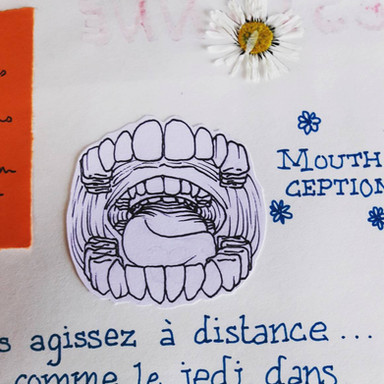 MOUTH
CEPTION
s agissez à distance...
comme le jedi dans